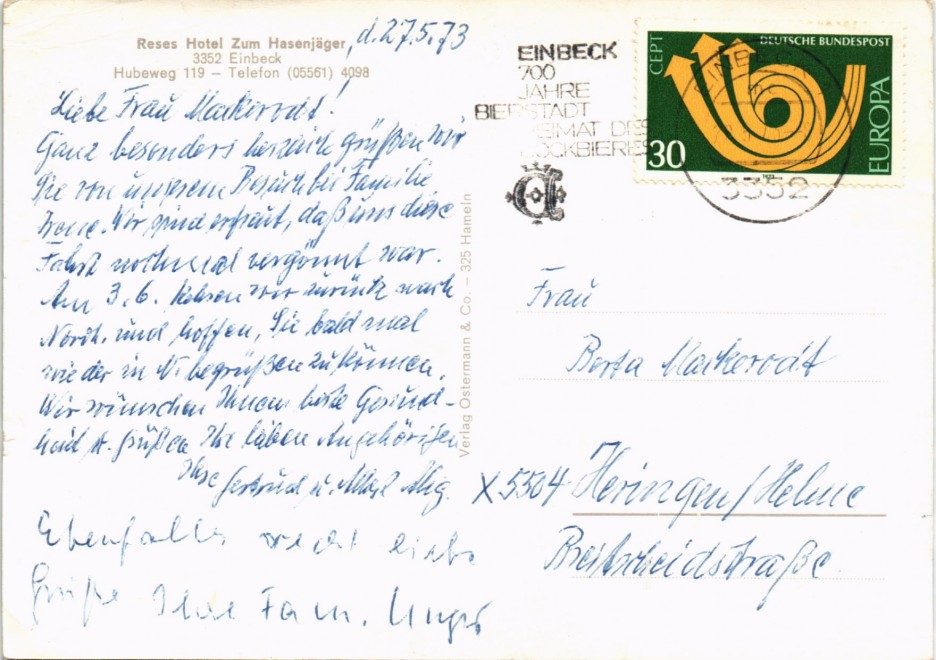 Reses Hotel Zum Hasenjäger
3352 Einbeck
Hubeweg 119 – Telefon (05561) 4098
d. 27.5.73
Liebe Frau Markerodt!
Ganz besonders herzlich grüßen wir
Sie von unserem Besuch bei Familie
Wir sind erfreut, daß uns diese
Fahrt nochmal vergönnt war.
Am 3.6. fahren wir zurück nach
Nordh. und hoffen, Sie bald mal
wieder in N. begrüßen zu können.
Wir wünschen Ihnen beste Gesund-
heit u. grüßen Ihre lieben Angehörigen
Ihre Gertrud u.
Ebenfalls recht liebe
Grüße Ihre Fam. Unger
Verlag Ostermann & Co. – 325 Hameln
EINBECK
700
JAHRE
BIERSTADT
HEIMAT DES
BOCKBIERES
EINBECK
3352
CEPT
DEUTSCHE BUNDESPOST
EUROPA
30
1973
Frau
Berta Markerodt
X 5504 Heringen/Helme
Breitscheidstraße